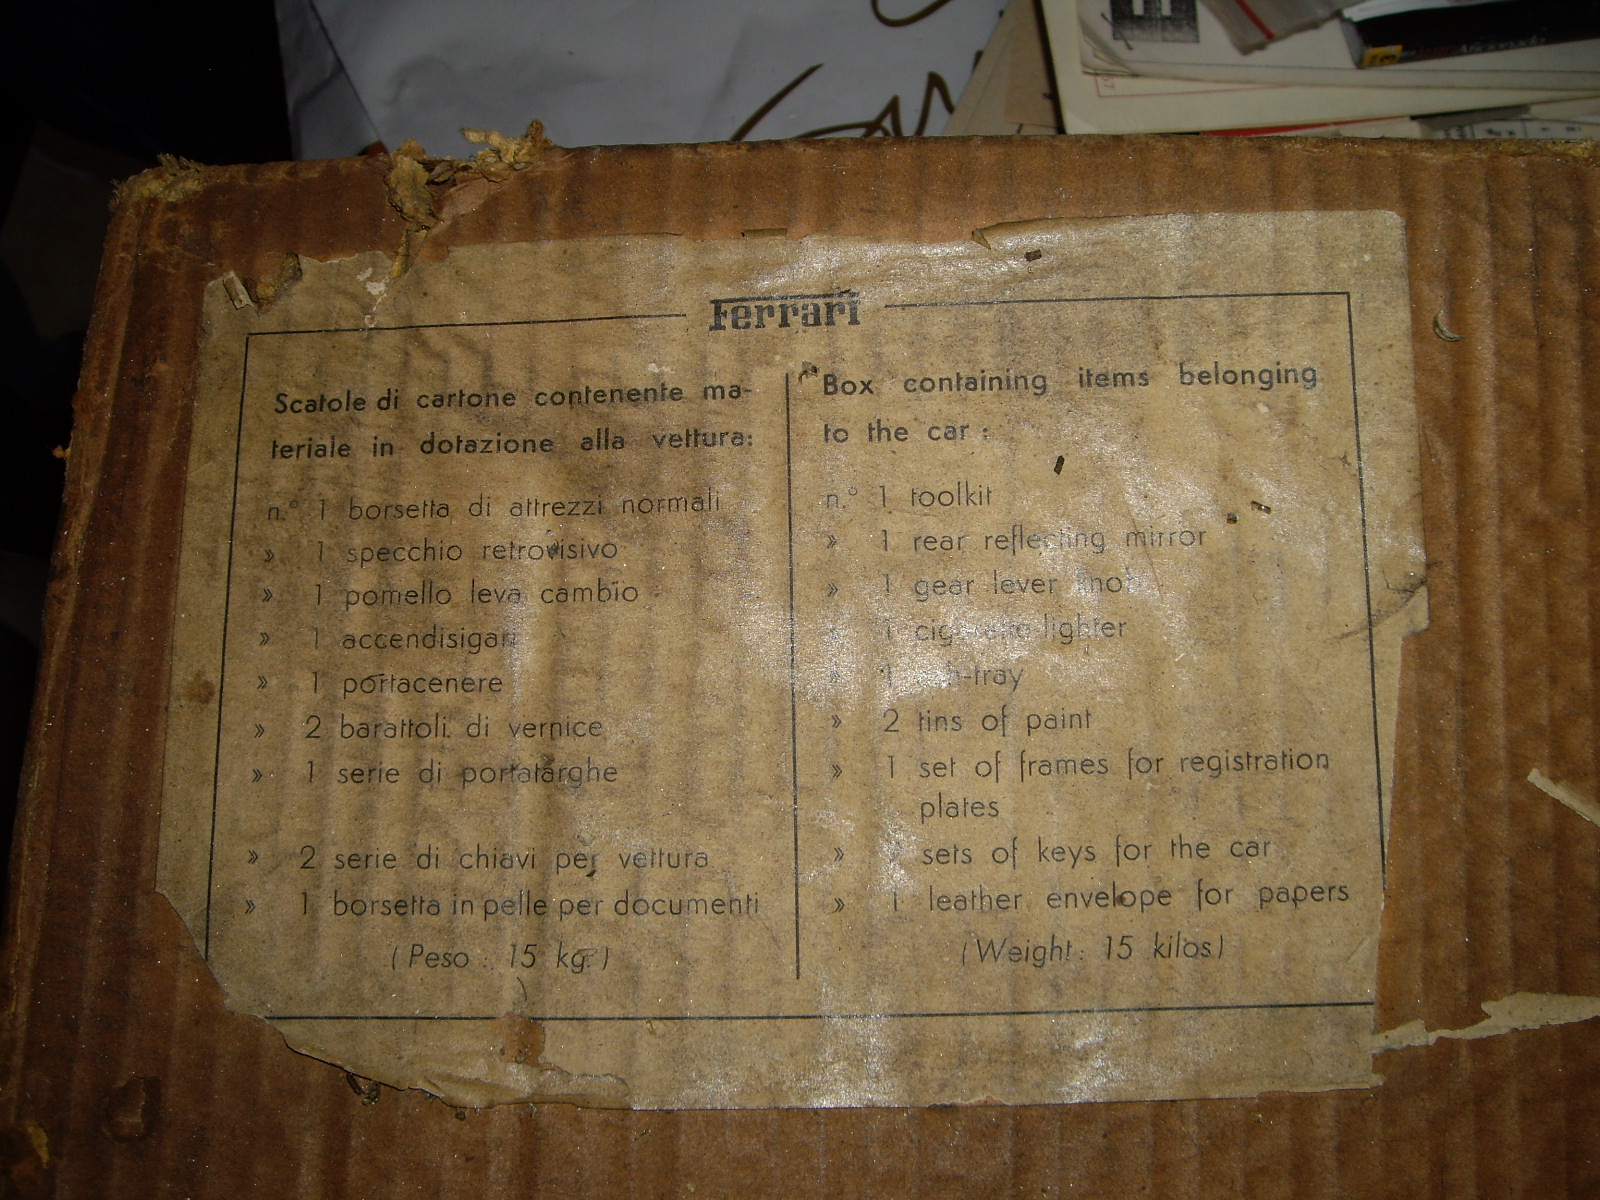 Ferrari
Scatole di cartone contenente ma-
teriale in dotazione alla vettura:
n.° 1 borsetta di attrezzi normali
» 1 specchio retrovisivo
» 1 pomello leva cambio
» 1 accendisigari
» 1 portacenere
» 2 barattoli di vernice
» 1 serie di portatarghe
» 2 serie di chiavi per vettura
» 1 borsetta in pelle per documenti
(Peso : 15 kg.)
Box containing items belonging
to the car :
n.° 1 toolkit
» 1 rear reflecting mirror
» 1 gear lever knob
» 1 cigarette-lighter
» 1 ash-tray
» 2 tins of paint
» 1 set of frames for registration
plates
» sets of keys for the car
» 1 leather envelope for papers
(Weight : 15 kilos)